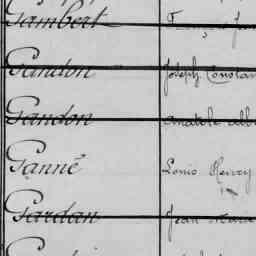 Gambert
Gandon Joseph Constan
Gandon Anatole Alb
Ganné Louis Henry
Gardan Jean Marie